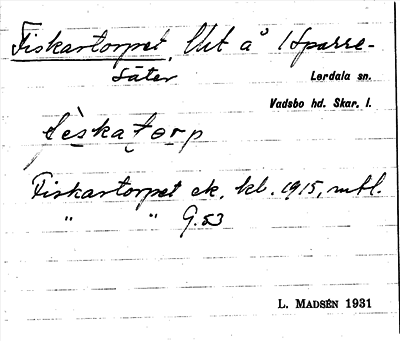 Fiskartorpet, Utt å 1 Sparre-
säter
Lerdala sn.
Vadsbo hd. Skar. l.
fèskatorp
Fiskartorpet ek. kl. 1915, mtl.
" " G. 53
L. MADSÉN 1931